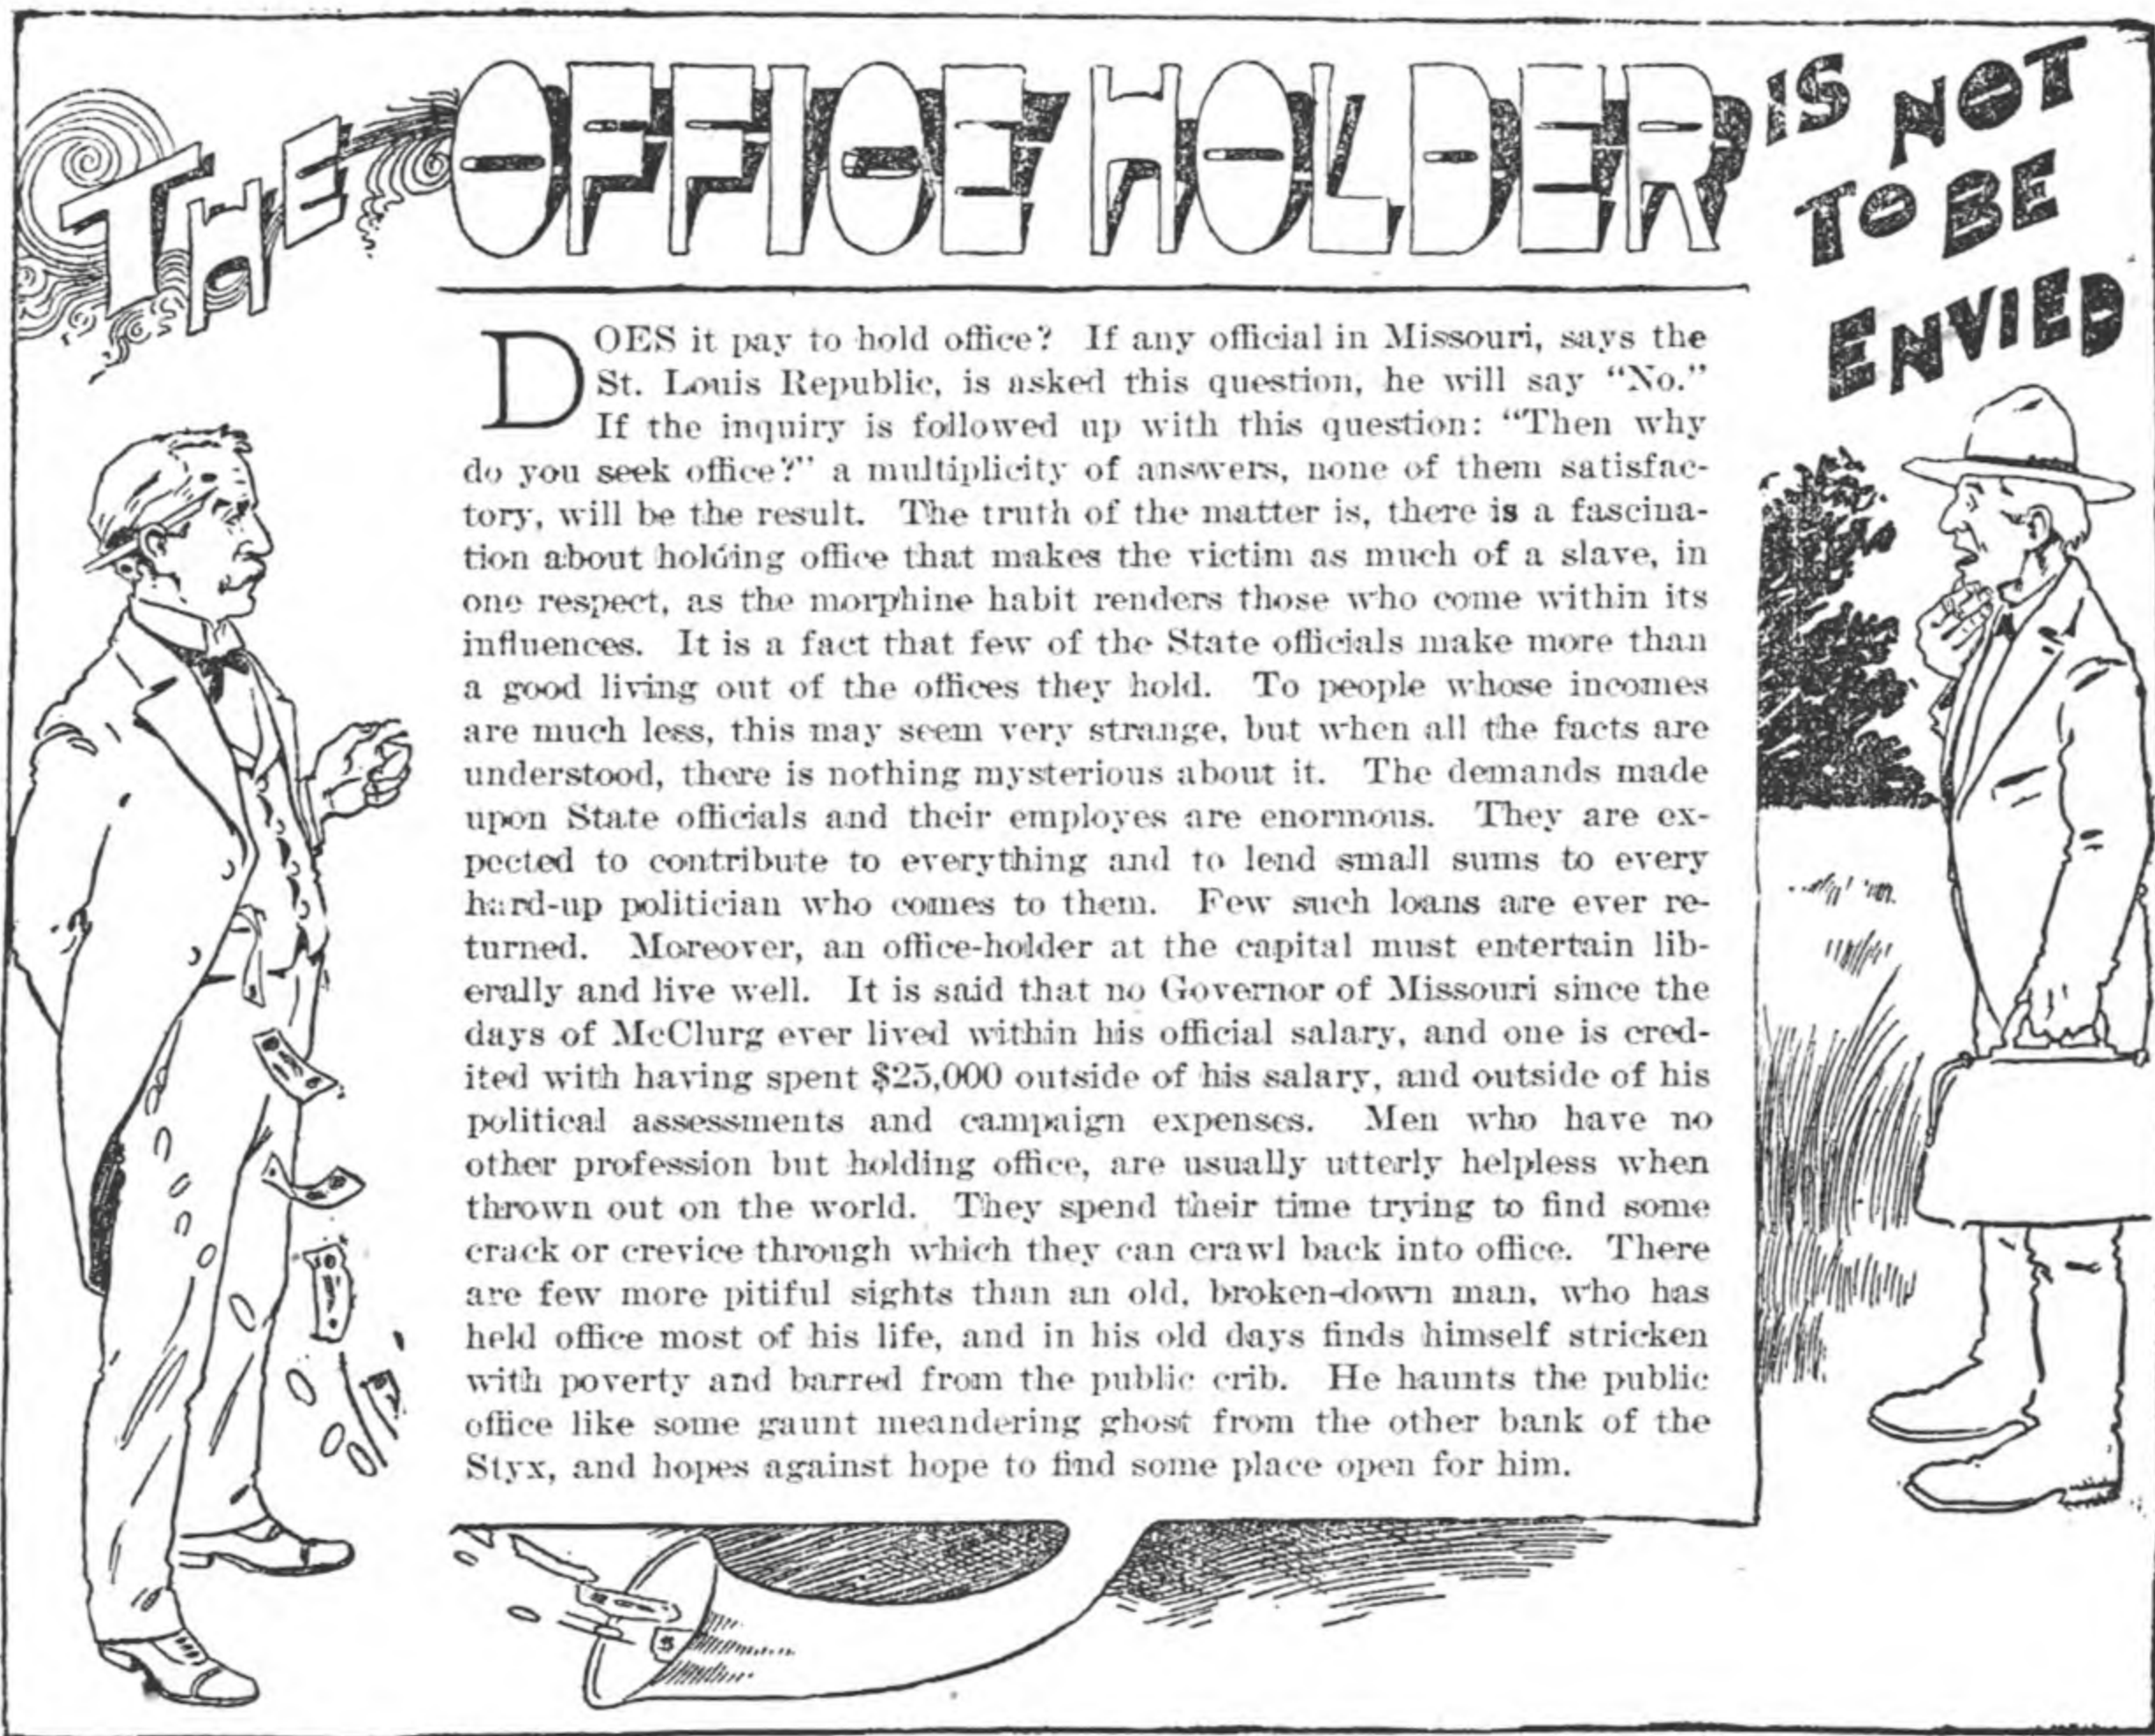 THE OFFICE HOLDER IS NOT
TO BE
ENVIED
DOES it pay to hold office? If any official in Missouri, says the
St. Louis Republic, is asked this question, he will say “No.”
If the inquiry is followed up with this question: “Then why
do you seek office?” a multiplicity of answers, none of them satisfac-
tory, will be the result. The truth of the matter is, there is a fascina-
tion about holding office that makes the victim as much of a slave, in
one respect, as the morphine habit renders those who come within its
influences. It is a fact that few of the State officials make more than
a good living out of the offices they hold. To people whose incomes
are much less, this may seem very strange, but when all the facts are
understood, there is nothing mysterious about it. The demands made
upon State officials and their employes are enormous. They are ex-
pected to contribute to everything and to lend small sums to every
hard-up politician who comes to them. Few such loans are ever re-
turned. Moreover, an office-holder at the capital must entertain lib-
erally and live well. It is said that no Governor of Missouri since the
days of McClurg ever lived within his official salary, and one is cred-
ited with having spent $25,000 outside of his salary, and outside of his
political assessments and campaign expenses. Men who have no
other profession but holding office, are usually utterly helpless when
thrown out on the world. They spend their time trying to find some
crack or crevice through which they can crawl back into office. There
are few more pitiful sights than an old, broken-down man, who has
held office most of his life, and in his old days finds himself stricken
with poverty and barred from the public crib. He haunts the public
office like some gaunt meandering ghost from the other bank of the
Styx, and hopes against hope to find some place open for him.
$